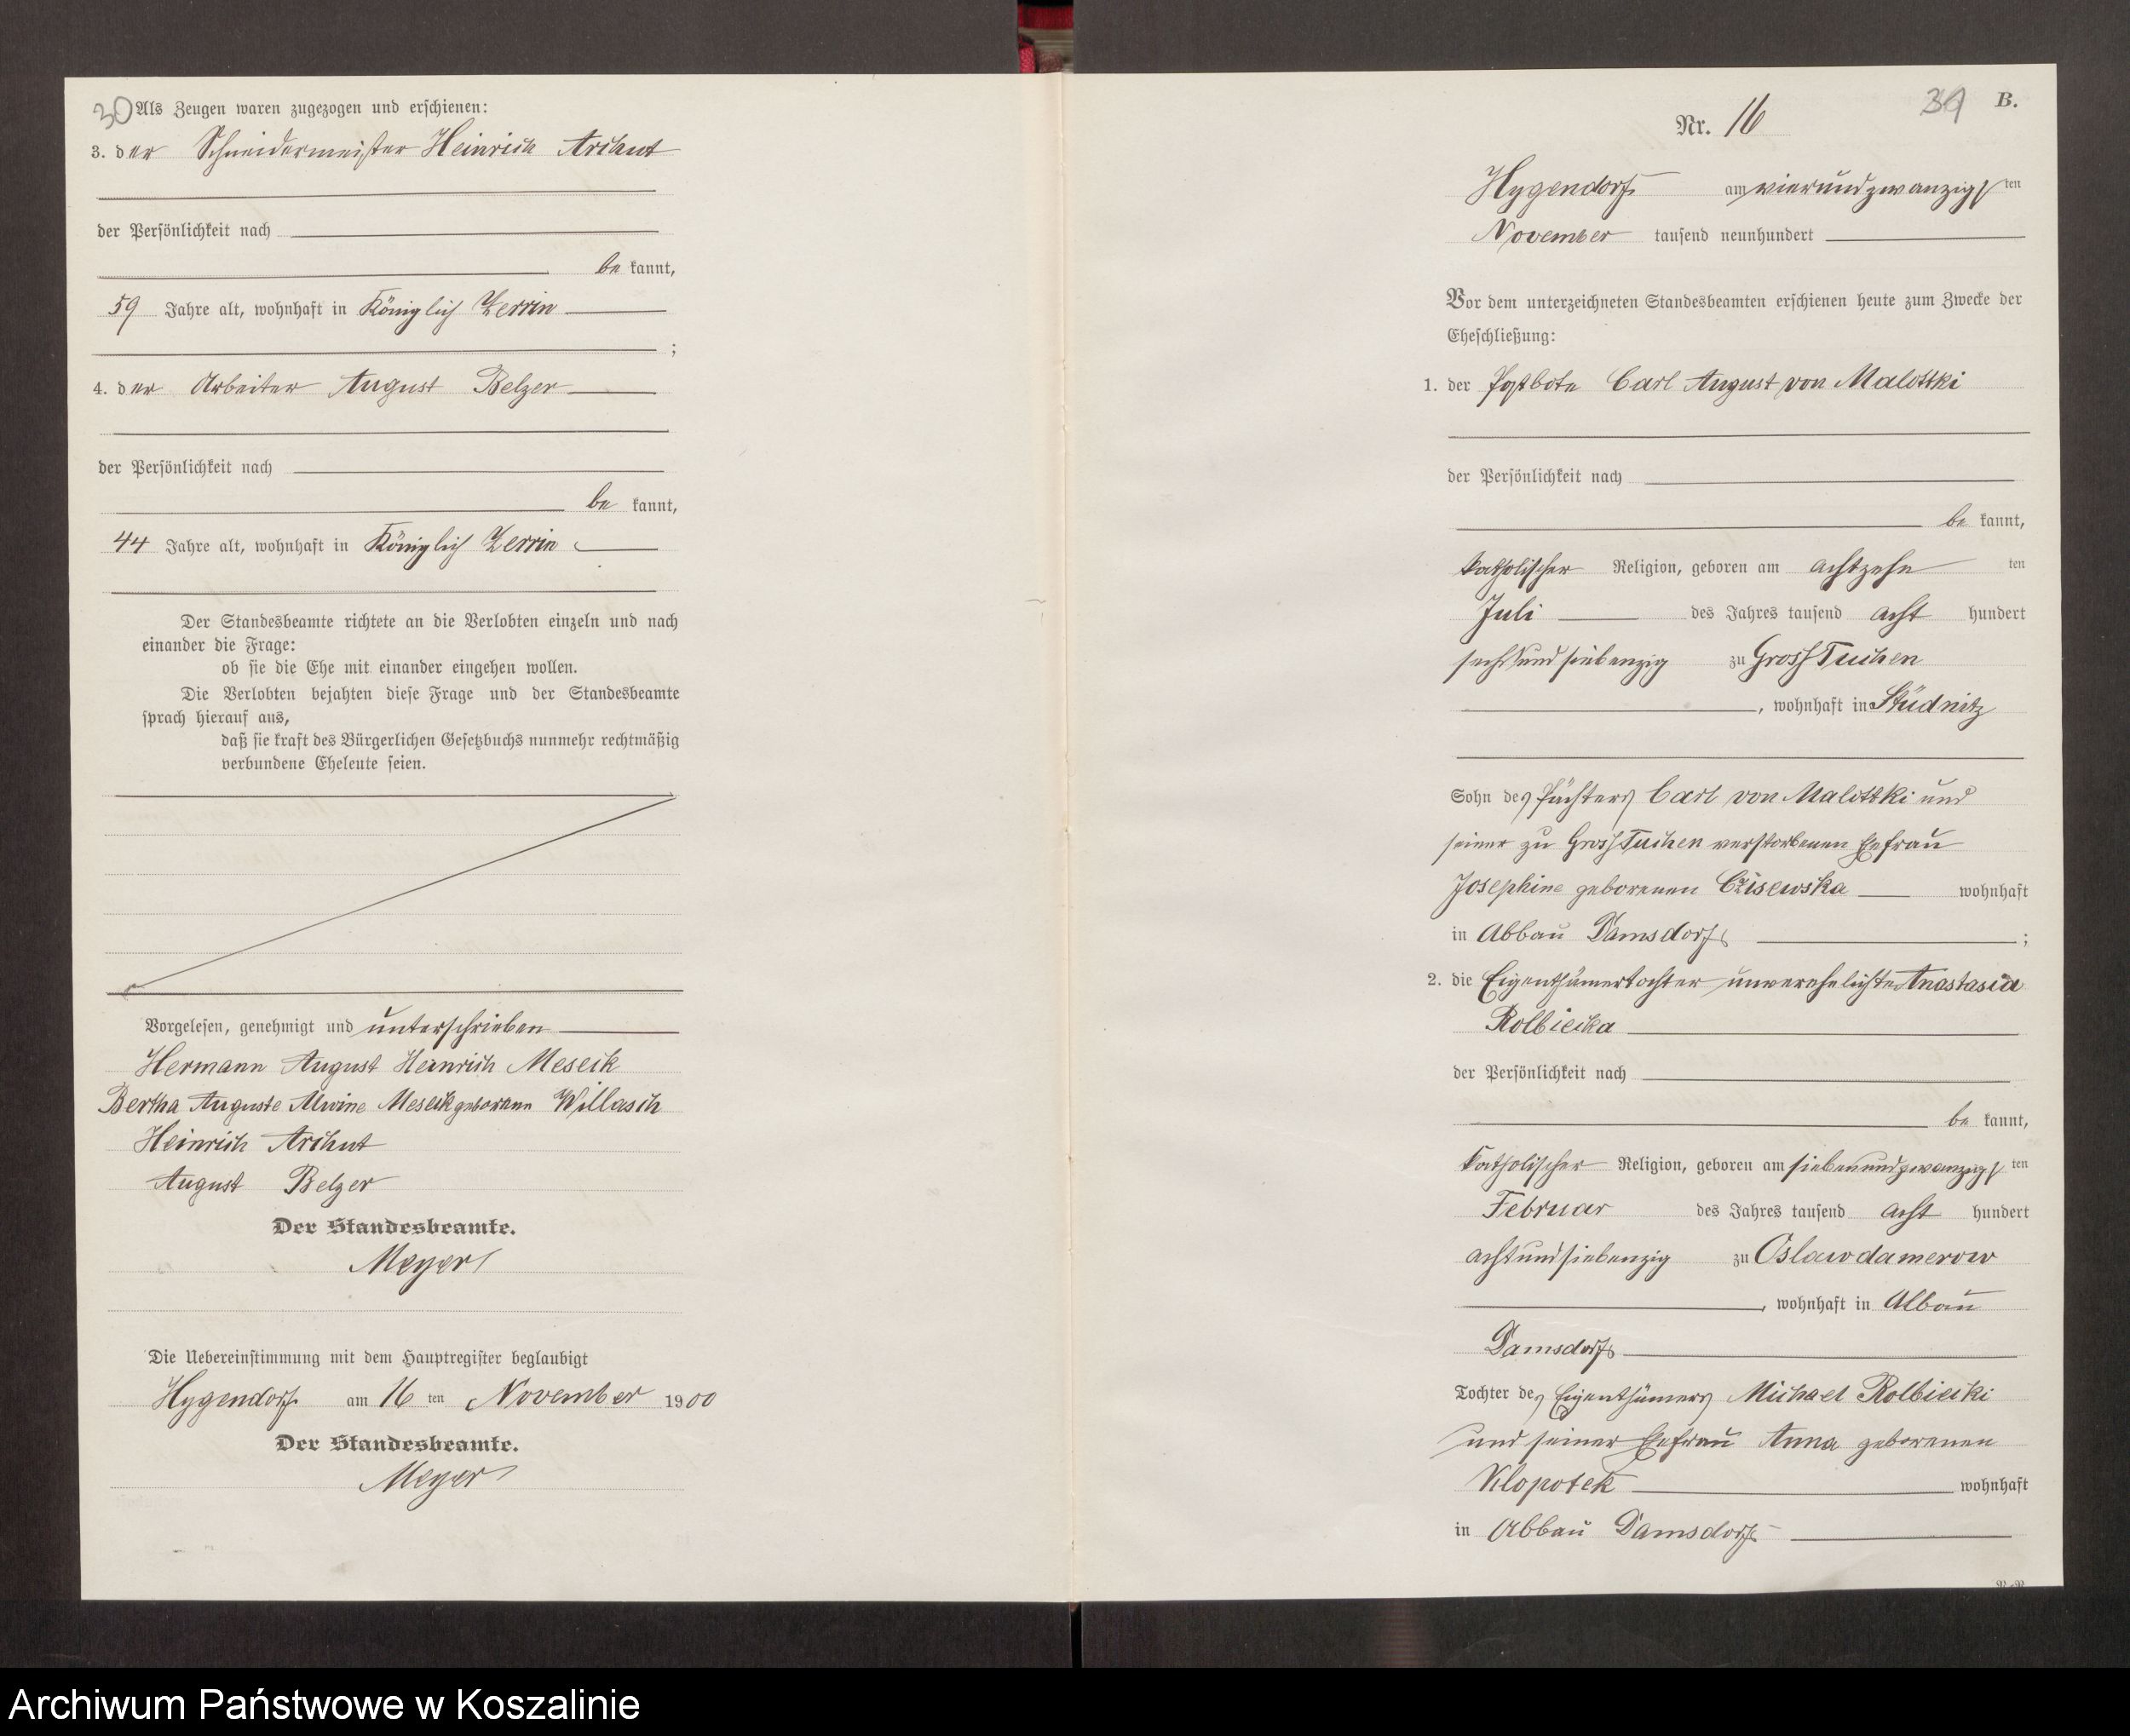 30
Als Zeugen waren zugezogen und erschienen:
3. der Schneidermeister Heinrich Archut
der Persönlichkeit nach
be kannt,
59 Jahre alt, wohnhaft in Königlich Zerrin
;
4. der Arbeiter August Belzer
der Persönlichkeit nach
be kannt,
44 Jahre alt, wohnhaft in Königlich Zerrin
Der Standesbeamte richtete an die Verlobten einzeln und nach
einander die Frage:
ob sie die Ehe mit einander eingehen wollen.
Die Verlobten bejahten diese Frage und der Standesbeamte
sprach hierauf aus,
daß sie kraft des Bürgerlichen Gesetzbuchs nunmehr rechtmäßig
verbundene Eheleute seien.
Vorgelesen, genehmigt und unterschrieben
Hermann August Heinrich Meseck
Bertha Auguste Alwine Meseck geborene Willasch
Heinrich Archut
August Belzer
Der Standesbeamte.
Meyer
Die Uebereinstimmung mit dem Hauptregister beglaubigt
Hygendorf am 16 ten November 1900
Der Standesbeamte.
Meyer
B.
Nr. 16
Hygendorf am vierundzwanzigsten
November tausend neunhundert
Vor dem unterzeichneten Standesbeamten erschienen heute zum Zwecke der
Eheschließung:
1. der Postbote Carl August von Malottki
der Persönlichkeit nach
be kannt,
katholischer Religion, geboren am achtzehn ten
Juli des Jahres tausend acht hundert
sechsundsiebenzig zu Gross Tuchen
, wohnhaft in Stüdnitz
Sohn des Pächters Carl von Malottki und
seiner zu Gross Tuchen verstorbenen Ehefrau
Josephine geborenen Czisewska wohnhaft
in Abbau Damsdorf ;
2. die Eigenthümertochter unverehelichte Anastasia
Rolbiecka
der Persönlichkeit nach
be kannt,
katholischer Religion, geboren am siebenundzwanzigsten
Februar des Jahres tausend acht hundert
achtundsiebenzig zu Oslawdamerow
, wohnhaft in Abbau
Damsdorf
Tochter des Eigenthümers Michael Rolbiecki
und seiner Ehefrau Anna geborenen
Klopotek wohnhaft
in Abbau Damsdorf
Archiwum Państwowe w Koszalinie